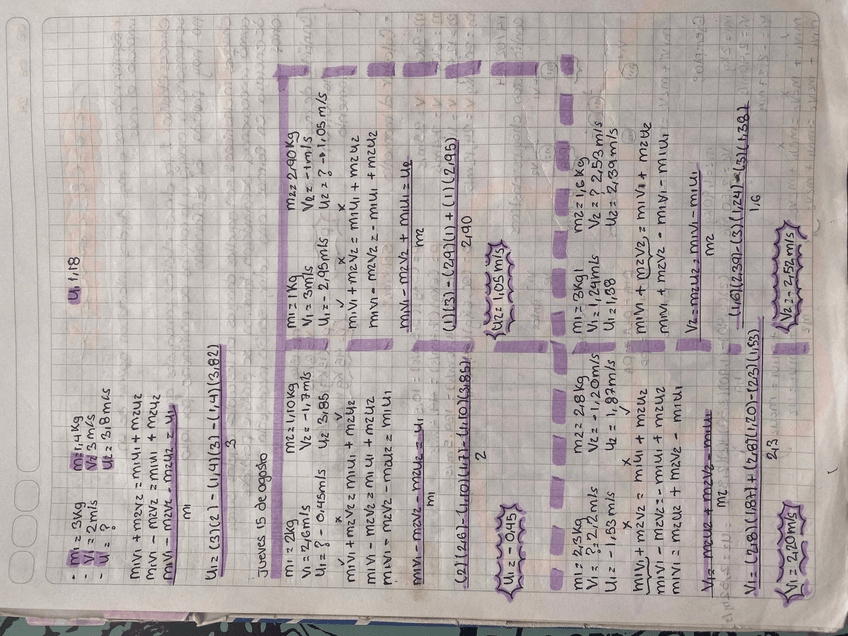 - m1 = 3kg m=1,4kg
- V1 = 2m/s V2 3m/s
- U = ? U2 = 3,8m/s
U1 1,18
m1V1 + m2V2 = m1U1 + m2U2
m1V1 - m2V2 = m1U1 + m2U2
m1V1 - m2V2 - m2U2 = U1
m1
U1 = (3)(2) - (1,4)(3) - (1,4)(3,82)
3
Jueves 15 de agosto
m1 = 2kg m2 = 1,10kg
V1 = 2,6m/s V2 = -1,7m/s
U1 = ? - 0,45m/s U2 3,85
m1V1 + m2V2 = m1U1 + m2U2
m1V1 - m2V2 = m1U1 + m2U2
m1V1 - m2V2 - m2U2 = m1U1
m1V1 - m2V2 - m2U2 = U1
m1
(2)(2,6) - (1,10)(1,7) - (1,10)(3,85)
2
U1 = -0,45
m1 = 1kg m2 = 2,90kg
V1 = 3m/s V2 = -1m/s
U1 = -2,95m/s U2 = ? → 1,05m/s
m1V1 + m2V2 = m1U1 + m2U2
m1V1 - m2V2 = - m1U1 + m2U2
m1V1 - m2V2 + m1U1 = U2
m2
(1)(3) - (2,9)(1) + (1)(2,95)
2,90
U2 = 1,05m/s
m1 = 2,3kg m2 = 2,8kg
V1 = ? 2,2m/s V2 = -1,20m/s
U1 = -1,53m/s U2 = 1,87m/s
m1V1 + m2V2 = m1U1 + m2U2
m1V1 - m2V2 = - m1U1 + m2U2
m1V1 = m2U2 + m2V2 - m1U1
V1 = m2U2 + m2V2 - m1U1
m2
V1 = (2,8)(1,87) + (2,8)(1,20) - (2,3)(1,53)
2,3
V1 = 2,20m/s
m1 = 3kg m2 = 1,6kg
V1 = 1,24m/s V2 = ? 2,53m/s
U1 = 1,38 U2 = 2,39m/s
m1V1 + m2V2 = m1V1 + m2U2
m1V1 + m2V2 - m1V1 - m1U1
V2 = m2U2 = m1V1 - m1U1
m2
(1,6)(2,39) - (3)(1,24) - (3)(1,38)
1,6
V2 = -2,52m/s